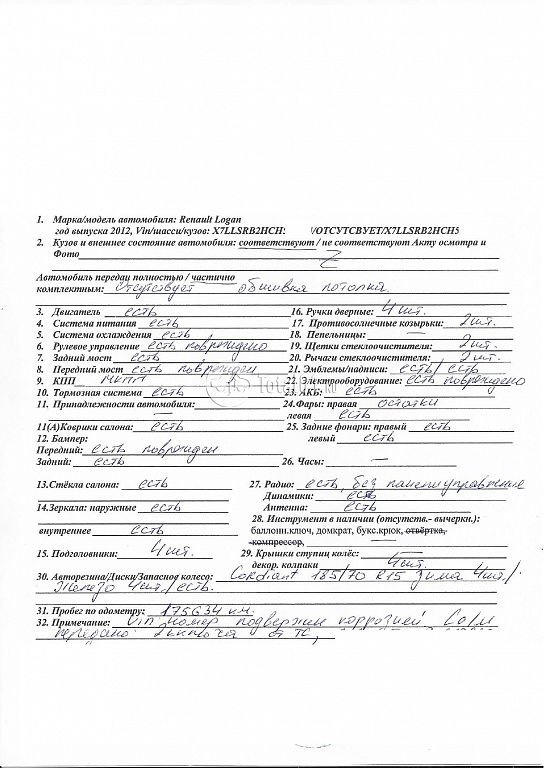 1. Марка/модель автомобиля: Renault Logan
год выпуска 2012, Vin/шасси/кузов: X7LLSRB2HCH: \/ОТСУТСВУЕТ/X7LLSRB2HCH5
2. Кузов и внешнее состояние автомобиля: соответствуют / не соответствуют Акту осмотра и
Фото
Автомобиль передан полностью / частично
комплектным: отсутствует обшивка потолка.
3. Двигатель есть 16. Ручки дверные: 4 шт.
4. Система питания есть 17. Противосолнечные козырьки: 2 шт.
5. Система охлаждения есть 18. Пепельницы: —
6. Рулевое управление есть повреждено 19. Щетки стеклоочистителя: 2 шт.
7. Задний мост есть 20. Рычаги стеклоочистителя: 2 шт.
8. Передний мост есть поврежден 21. Эмблемы/надписи: есть/ есть
9. КПП МКПП 22. Электрооборудование: есть повреждено
10. Тормозная система есть 23. АКБ: есть
11. Принадлежности автомобиля: — 24.Фары: правая остатки
левая есть
11(А)Коврики салона: есть 25. Задние фонари: правый есть
12. Бампер: левый есть
Передний: есть поврежден
Задний: есть 26. Часы: —
13.Стёкла салона: есть 27. Радио: есть без панели управления
Динамики: есть
14.Зеркала: наружные есть Антенна: есть
28. Инструмент в наличии (отсутств.- вычеркн.):
внутреннее есть баллонн.ключ, домкрат, букс.крюк, отвёртка,
компрессор,
15. Подголовники: 4 шт. 29. Крышки ступиц колёс: —
декор. колпаки 4 шт.
30. Авторезина/Диски/Запасное колесо: Cordiant 185/70 R15 зима 4шт./
железо 4шт./ есть.
31. Пробег по одометру: 175634 км.
32. Примечание: Vin номер подвержен коррозией
передано: 2 ключа от ТС,